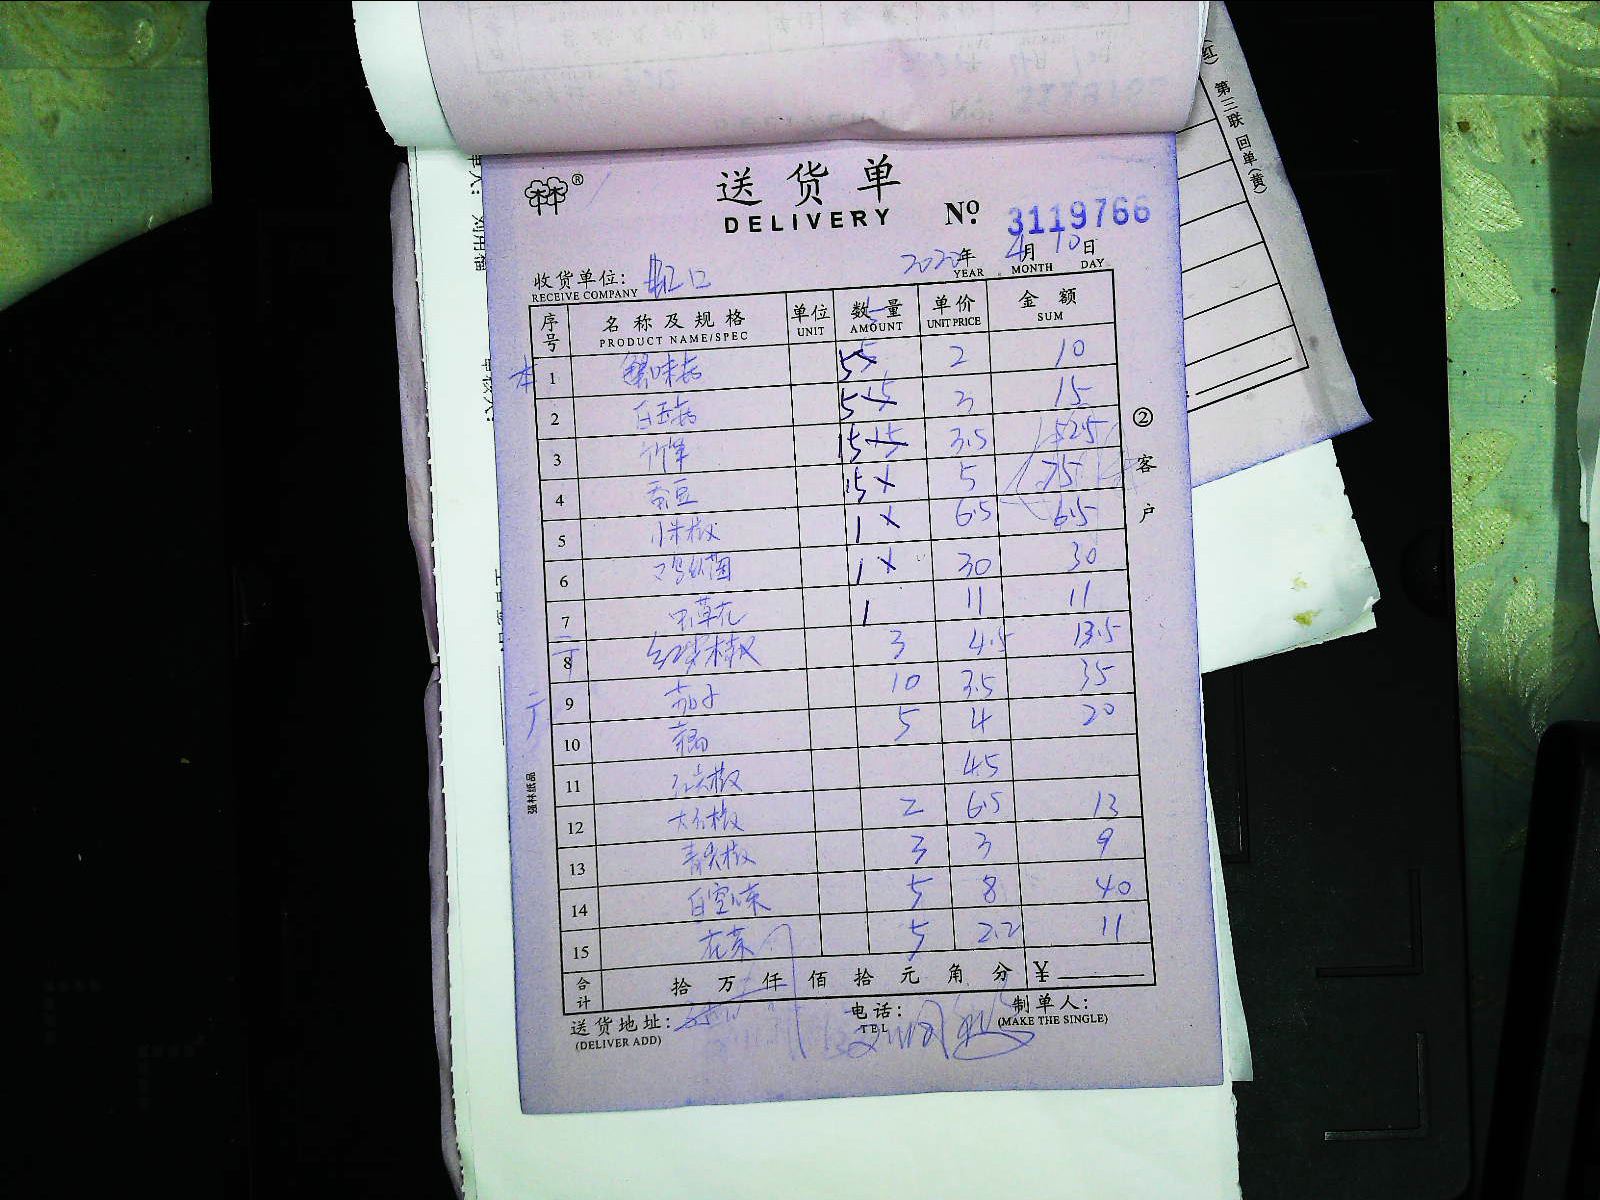 (红)
第三联 回单(黄)
送货单
DELIVERY
No. 3119766
2020年 4月 10日
YEAR MONTH DAY
收货单位: 虹口
RECEIVE COMPANY
序号 名称及规格 单位 数量 单价 金额
PRODUCT NAME/SPEC UNIT AMOUNT UNIT PRICE SUM
1 蟹味菇 5 2 10
2 白玉菇 5 15 3 15
3 竹笋 15 15 3.5 52.5
4 蚕豆 15 5 75
5 小米椒 1 6.5 6.5
6 鸡纵菌 1 30 30
7 虫草花 1 11 11
8 红尖椒 3 4.5 13.5
9 茄子 10 3.5 35
10 5 4 20
11 红尖椒 4.5
12 大红椒 2 6.5 13
13 青尖椒 3 3 9
14 5 8 40
15 花菜 5 2.2 11
合计 拾 万 仟 佰 拾 元 角 分 ¥
送货地址:
(DELIVER ADD)
电话:
TEL
制单人:
(MAKE THE SINGLE)
②客户
强林纸品